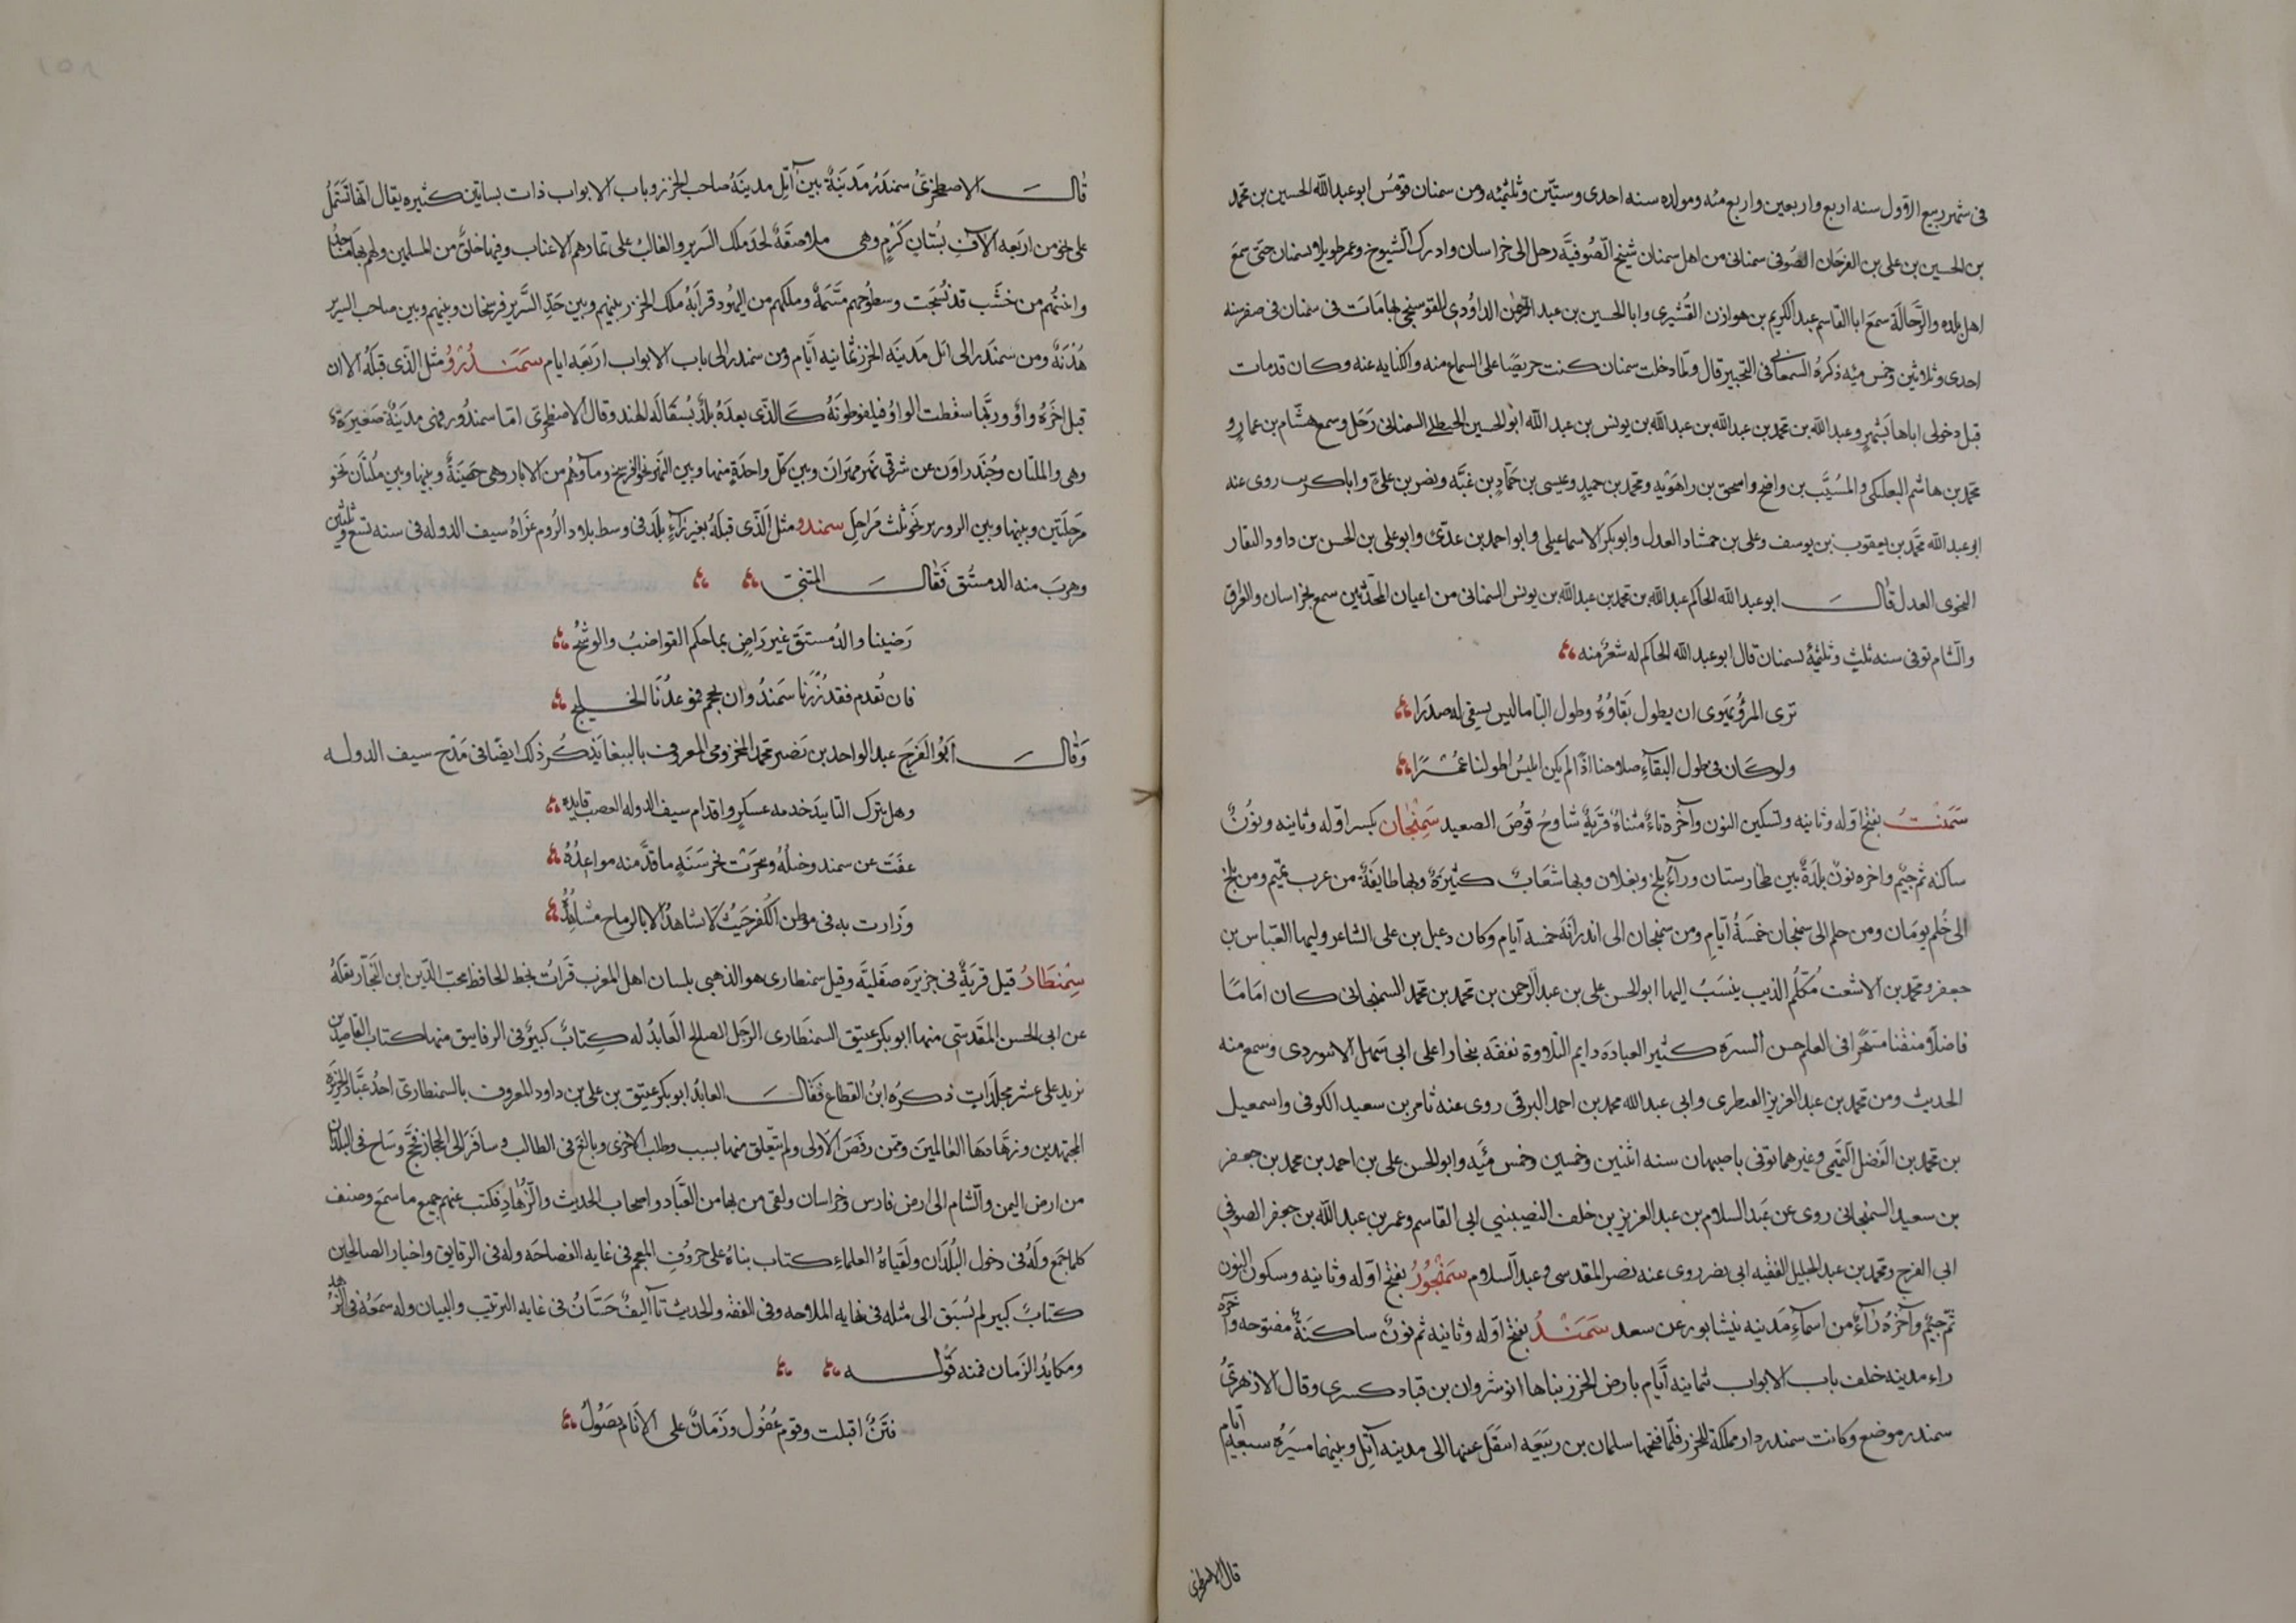 فى شهر ربيع الاول سنه اربع واربعين واربع مئه ومولده سنه احدى وستين وثلثمئه ومن سمنان قومس ابو عبد الله الحسين بن محمد
بن الحسين بن على بن الفرحان الصوفى سمنانى من اهل سمنان شيخ الصوفيه رحل الى خراسان وادرك الشيوخ وعمر طويلا بسمنان حتى سمع
اهل بلده والرحاله سمع ابا القاسم عبد الكريم بن هوازن القشيرى وابا الحسين بن عبد الرحمن الداودى للفوسنجى بها مات فى سمنان فى صفر سنه
احدى وثلاثين وخمس مئه ذكره السمعانى فى التحبير قال ولما دخلت سمنان كنت حريصا على السماع منه والكتابه عنه وكان قد مات
قبل دخولى اياها بشهر وعبد الله بن محمد بن عبد الله بن عبد الله بن يونس بن عبد الله ابو الحسين السمنانى رحل وسمع هشام بن عمار و
محمد بن هاشم البعلبكى والمسيب بن واضح واسحق بن راهويه ومحمد بن حميد وعيسى بن حماد بن غبه ونصر بن على وابا كريب روى عنه
ابو عبد الله محمد بن يعقوب بن يوسف وعلى بن حمشاد العدل وابو بكر الاسماعيلى وابو احمد بن عدى وابو على بن الحسن بن داود النقار
النحوى العدل قال ابو عبد الله الحاكم عبد الله بن محمد بن عبد الله بن يونس السمنانى من اعيان المحدثين سمع بخراسان والعراق
والشام توفى سنه ثلث وثلثمئه بسمنان قال ابو عبد الله الحاكم له شعر منه
ترى المرؤ يهوى ان يطول بقاؤه وطول البقا ما ليس يسقى له صدرا
ولو كان فى طول البقاء صلاحنا اذا لم يكن ابليس اطولنا عمرا
سمنت بفتح اوله وثانيه وتسكين النون وآخره تاء مثناه قرية قوص الصعيد سمنجان بكسر اوله وثانيه ونون
ساكنه ثم جيم واخره نون بلدة بين طخارستان وراء بلخ وبغلان وبها شعاب كثيرة وبها طايفة من عرب تميم ومن بلخ
الى خلم يومان ومن خلم الى سمنجان خمسة أيام ومن سمنجان الى اندرابه خمسه أيام وكان دعبل بن على الشاعر وليها للعباس بن
جعفر ومحمد بن الاشعث مكلم الذيب ينسب اليها ابو الحسن على بن عبد الرحمن بن محمد بن محمد السمنجانى كان اماما
فاضلا متفننا متبحرا فى العلم حسن السره كثير العباده دايم التلاوة تفقه ببخارا على ابى سهل الابيوردى وسمع منه
الحديث ومن محمد بن عبد العزيز القنطرى وابى عبد الله محمد بن احمد البرقى روى عنه ثامر بن سعيد الكوفى واسمعيل
بن محمد بن الفضل التيمى وغيرهما توفى باصبهان سنه اثنين وخمسين وخمس مئه وابو الحسن على بن احمد بن محمد بن جعفر
بن سعيد السمنجانى روى عن عبد السلام بن عبد العزيز بن خلف النصيبينى ابى القاسم وعمر بن عبد الله بن جعفر الصوفى
ابى الفرج ومحمد بن عبد الجليل الفقيه ابى نصر روى عنه نصر المقدسى وعبد السلام سمنجور بفتح اوله وثانيه وسكون النون
ثم جيم وآخره راء من اسماء مدينه نيشابور عن سعد سمندر بفتح اوله وثانيه ثم نون ساكنة مفتوحه وآخره
راء مدينه خلف باب الابواب ثمانيه أيام بارض الخزر بناها انوشروان بن قباد كسرى وقال الازهرى
سمندر موضع وكانت سمندر دار مملكة للخزر فلما فتحها سلمان بن ربيعه انتقل عنها الى مدينه آتل وبينهما مسيره سبعه أيام
قال الاصطخرى
قال الاصطخرى سمندر مدينة بين آتل مدينة صاحب الخزر وباب الابواب ذات بساتين كثيره يقال انها تشتمل
على نحو من اربعه الآف بستان كرم وهى ملاصقة لحد ملك السرير والغالب على ثمارهم الاعناب وفيها خلق من المسلمين ولهم بها مساجد
وابنيتهم من خشب قد نسجت وسطوحهم مسنمة وملكهم من اليهود قرابة ملك الخزر بينهم وبين حد السرير فرسخان وبينهم وبين صاحب السرير
هدنة ومن سمندر الى اتل مدينه الخزر ثمانيه أيام ومن سمندر الى باب الابواب اربعه ايام سمندرو مثل الذى قبله الا ان
قبل اخره واو وربما سقطت الواو فيلفظونه كالذى بعده بلد بسفاله الهند وقال الاصطخرى اما سمندور فهى مدينة صغيرة
وهى والملتان وجندراون عن شرقى نهر مهران وبين كل واحدة منها وبين النهر نحو الفرسخ وماؤهم من الابار وهى حصينة وبينها وبين ملتان نحو
مرحلتين وبينها وبين الرور نحو ثلث مراحل سمندو مثل الذى قبله بغير راء بلد فى وسط بلاد الروم غزاه سيف الدوله فى سنه تسع وثلثين
وهرب منه الدمستق فقال المتنبى
رضينا والدمستق غير راض بما حكم القواضب والوشيج
فان تقدم فقد زرنا سمندو وان يحجم فموعدنا الخليج
وقال أبو الفرج عبد الواحد بن نصر محمد المخزومى المعروف بالببغا يذكر ذلك ايضا فى مدح سيف الدوله
وهل يترك التاييد خدمه عسكر واقدام سيف الدوله العضب قايده
عفت عن سمندو خيله وتنجزت بخرشنة ما قد منه مواعده
وزارت به فى موطن الكفر حيث لا شاهد الا بالرماح مشاهده
سمنطار قيل قرية فى جزيره صقلية وقيل سمنطارى هو الذهبى بلسان اهل المغرب قرات بخط الحافظ محب الدين ابن النجار نقله
عن ابى الحسن المقدسى منها ابو بكر عتيق السمنطارى الرجل الصالح العابد له كتاب كبير فى الرقايق منها كتاب القاصدين
يزيد على عشر مجلدات ذكره ابن القطاع فقال العابد ابو بكر عتيق بن على بن داود المعروف بالسمنطارى احد عباد الجزيره
المجتهدين وزهادها العالمين وممن رفض الاولى ولم يتعلق منها بسبب وطلب الاخرى وبالغ فى الطالب وسافر الى الحجاز فحج وساح فى البلدان
من ارض اليمن والشام الى ارض فارس وخراسان ولقى من بها من العباد واصحاب الحديث والزهاد فكتب عنهم جميع ما سمع وصنف
كلما جمع وله فى دخول البلدان ولقياه العلماء كتاب بناه على حروف المعجم فى غايه الفصاحه وله فى الرقايق واخبار الصالحين
كتاب كبير لم يسبق الى مثله فى نهايه الملاحه وفى الفقه والحديث تآليف حسان فى غايه الترتيب والبيان وله شعر فى الزهد
ومكايد الزمان فمنه قوله
فتن اقبلت وقوم غفول وزمان على الانام يصول